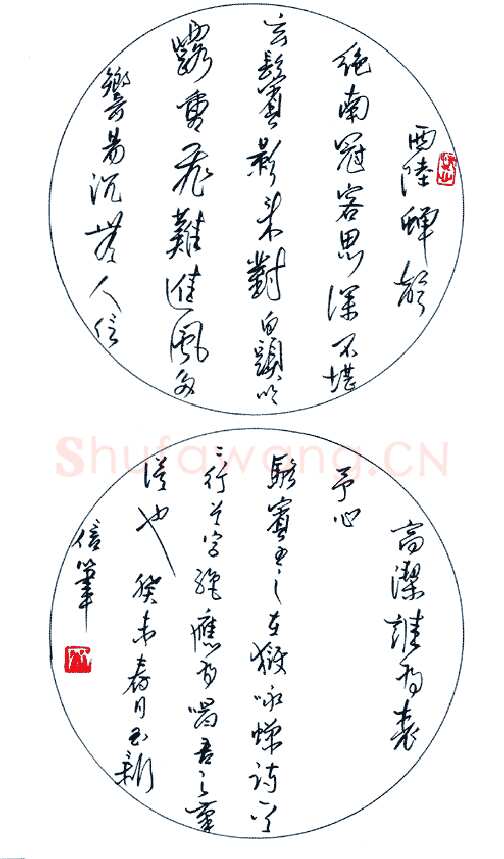 西陸蟬聲
絶南冠客思深不堪
玄鬢影来對白頭吟
露重飛難進風多
響易沉無人信
高潔誰為表
予心
駱賓王之在獄咏蟬詩第
二行首字絶應為唱吾之筆
误也 癸未春月
信筆
Shufawang.CN